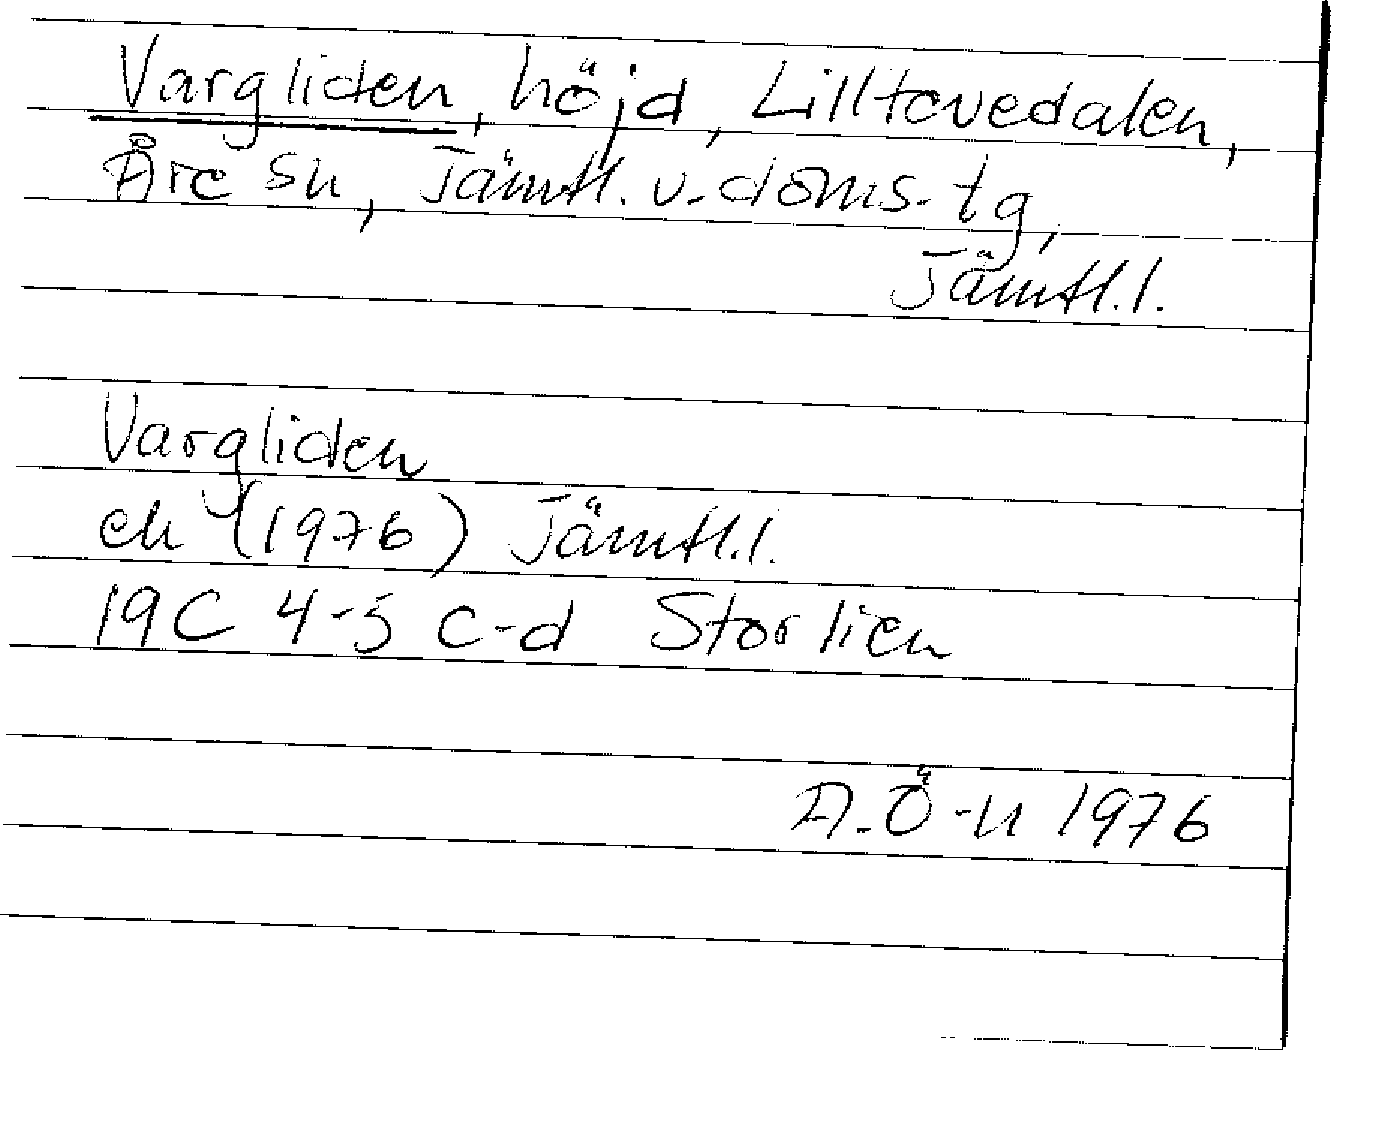 Vargliden, höjd, Lilltevedalen,
Åre sn, Jämtl. v. doms. tg,
Jämtl. l.
Vargliden
ek (1976) Jämtl. l.
19C 4-5 c-d Storlien
A. Ö-n 1976